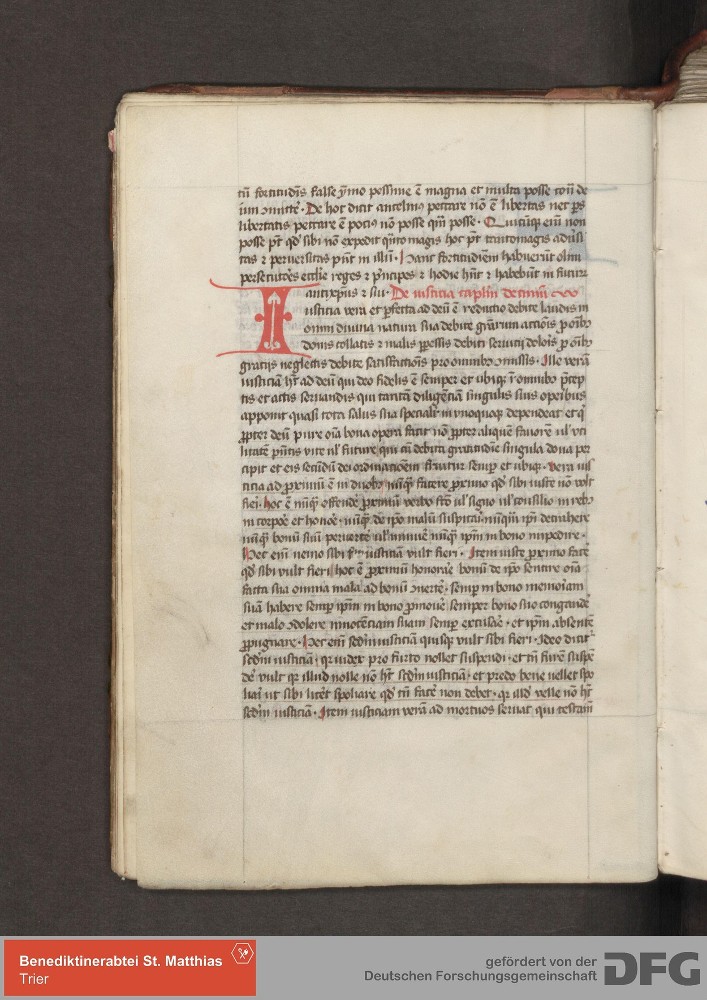 tū fortitudīs false ymo pessime ē magna et multa posse
De hoc dicit anselmus peccare nō ē libertas nec ps
libertatis peccare ē poci nō posse qm posse. Quicūqꝫ eni non
posse pt qd sibi nō expedit qnto magis hoc pt tantomagis
tas ⁊ peruersitas pnt in illū. Hanc fortitudiem habuerūt olim
persecutores ecclie reges ⁊ pncipes ⁊ hodie hnt ⁊ habebūt in
antixpus ⁊ sui. De iusticia caplm
Iusticia vera et pfecta ad deū ē reductio debite laudis in
omni diuina natura sua debite gratiarum actiois p
donis collatis ⁊ malis pessis debiti seruicij
gratijs neglectis debite satisfactiois pro omnibꝫ missis. Ille verā
iusticiam ht ad deū qui deo fidelis ē semper et ubiqꝫ ī omnibꝫ pcep
tis et actis seruandis qui tantā diligēciam singulis suis opeibus
apponit quasi tota salus sua specialr in vnoquoqꝫ dependeat et q
ꝓpter deū pure oīa bona opera facit nō ꝓpter aliquē fauorē ul' vti
litatē pntis vite ul' future qui cū debita gratitudine singula dona per
cipit et eis secūdū dei ordinacōem semp et ubiqꝫ. Vera ius
ticia ad proximū ē in duobꝫ nūqꝫ facere proximo qd sibi iuste nō volt
fiei. hoc ē nūqꝫ offende proximū verbo fco ul' signo ul' consilio in rebꝫ
in corpoe et honoe. nūqꝫ de ipo malū suspicai nūqm ipi detrahere
nūqꝫ bonū suū peruerte ul' minue nūqꝫ ipm in bono impedire.
Hec eni nemo sibi iusticiam vult fieri. Item iuste proximo facē
qd sibi vult fieri hoc ē proximū honorae bonū de ipo sentire oīa
facta sua omnia mala ad bonū uerte. semp in bono memoiam
suā habere semp ipm in bono pmoue semper bono suo congaude
et malo ꝯdolere innocenciam suam semp excusae. et ipm absente
ꝓpugnare. Hec eni scdm iusticiā quisqꝫ vult sibi fieri. Ideo dicit
scdm iusticiā. qr iudex pro furto nollet suspendi. et tn furē suspē
de vult qr illud nolle nō ht scdm iusticiā. et predo bene vellet spo
liai ut sibi licet spoliare qd tn face non debet. qr illd velle nō ht
scdm iusticiā. Item iusticiam verā ad mortuos seruat qui testam
Benediktinerabtei St. Matthias
Trier
gefördert von der
Deutschen Forschungsgemeinschaft
DFG